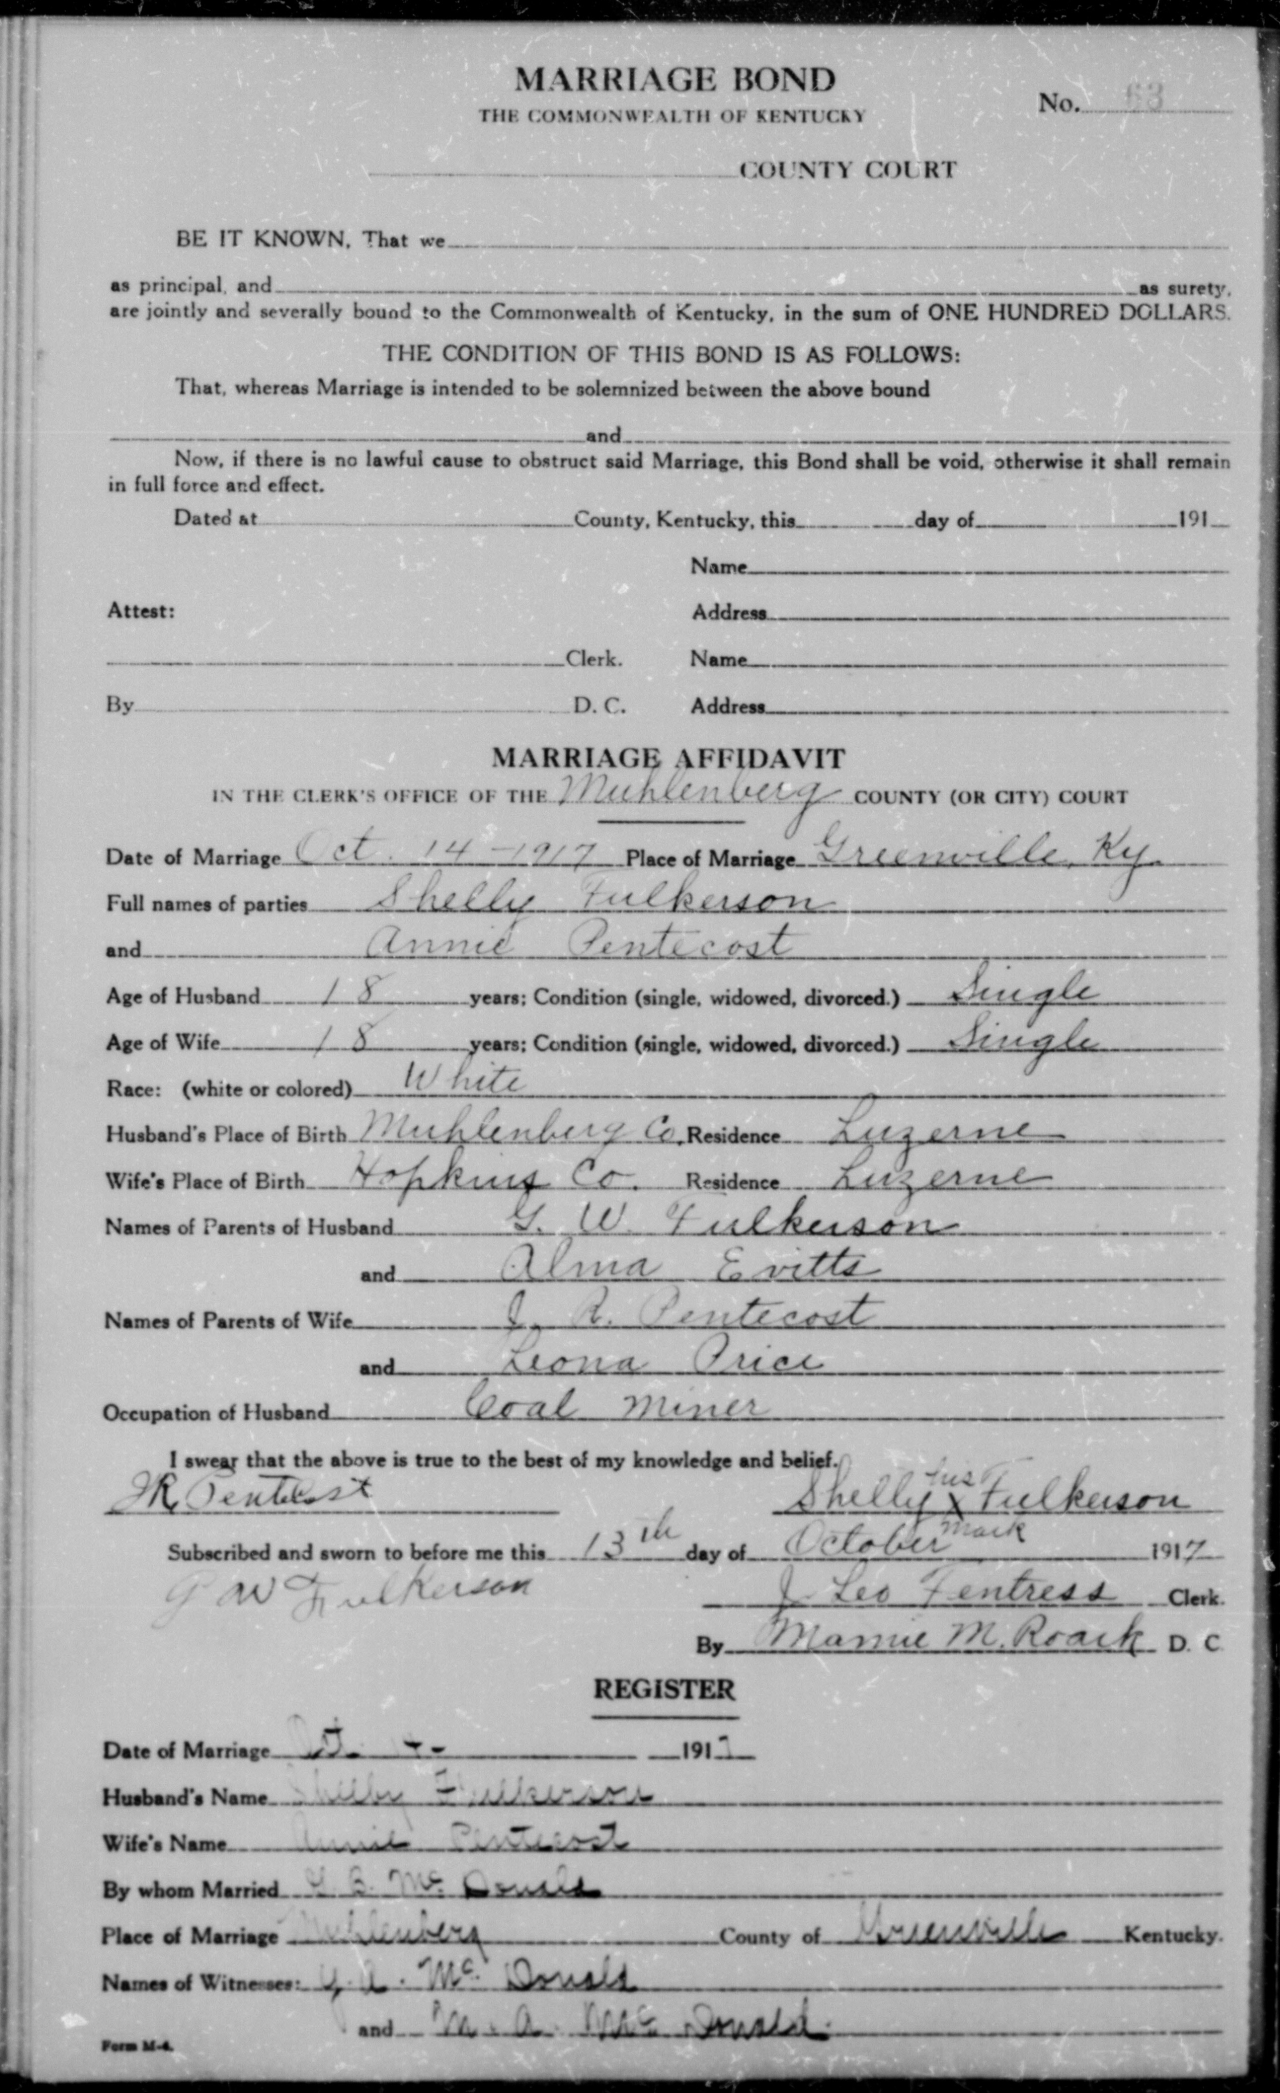 MARRIAGE BOND
THE COMMONWEALTH OF KENTUCKY
No. 63
COUNTY COURT
BE IT KNOWN, That we
as principal, and as surety,
are jointly and severally bound to the Commonwealth of Kentucky, in the sum of ONE HUNDRED DOLLARS.
THE CONDITION OF THIS BOND IS AS FOLLOWS:
That, whereas Marriage is intended to be solemnized between the above bound
and
Now, if there is no lawful cause to obstruct said Marriage, this Bond shall be void, otherwise it shall remain
in full force and effect.
Dated at County, Kentucky, this day of 191
Name
Attest: Address
Clerk. Name
By D. C. Address
MARRIAGE AFFIDAVIT
IN THE CLERK'S OFFICE OF THE Muhlenberg COUNTY (OR CITY) COURT
Date of Marriage Oct. 14 - 1917 Place of Marriage Greenville, Ky.
Full names of parties Shelly Fulkerson
and Annie Pentecost
Age of Husband 18 years; Condition (single, widowed, divorced.) Single
Age of Wife 18 years; Condition (single, widowed, divorced.) Single
Race: (white or colored) White
Husband's Place of Birth Muhlenberg Co. Residence Luzerne
Wife's Place of Birth Hopkins Co. Residence Luzerne
Names of Parents of Husband G. W. Fulkerson
and Alma Evitts
Names of Parents of Wife J. R. Pentecost
and Leona Price
Occupation of Husband Coal Miner
I swear that the above is true to the best of my knowledge and belief.
JR Pentecost Shelly his X mark Fulkerson
Subscribed and sworn to before me this 13th day of October 1917
G W Fulkerson J Leo Fentress Clerk.
By Mamie M. Roark D. C
REGISTER
Date of Marriage Oct. 14- 1917
Husband's Name Shelby Fulkerson
Wife's Name Annie Pentecost
By whom Married G. B. McDonald
Place of Marriage Muhlenberg County of Greenville Kentucky.
Names of Witnesses: G. A. McDonald
and M. A. McDonald.
Form M-4.